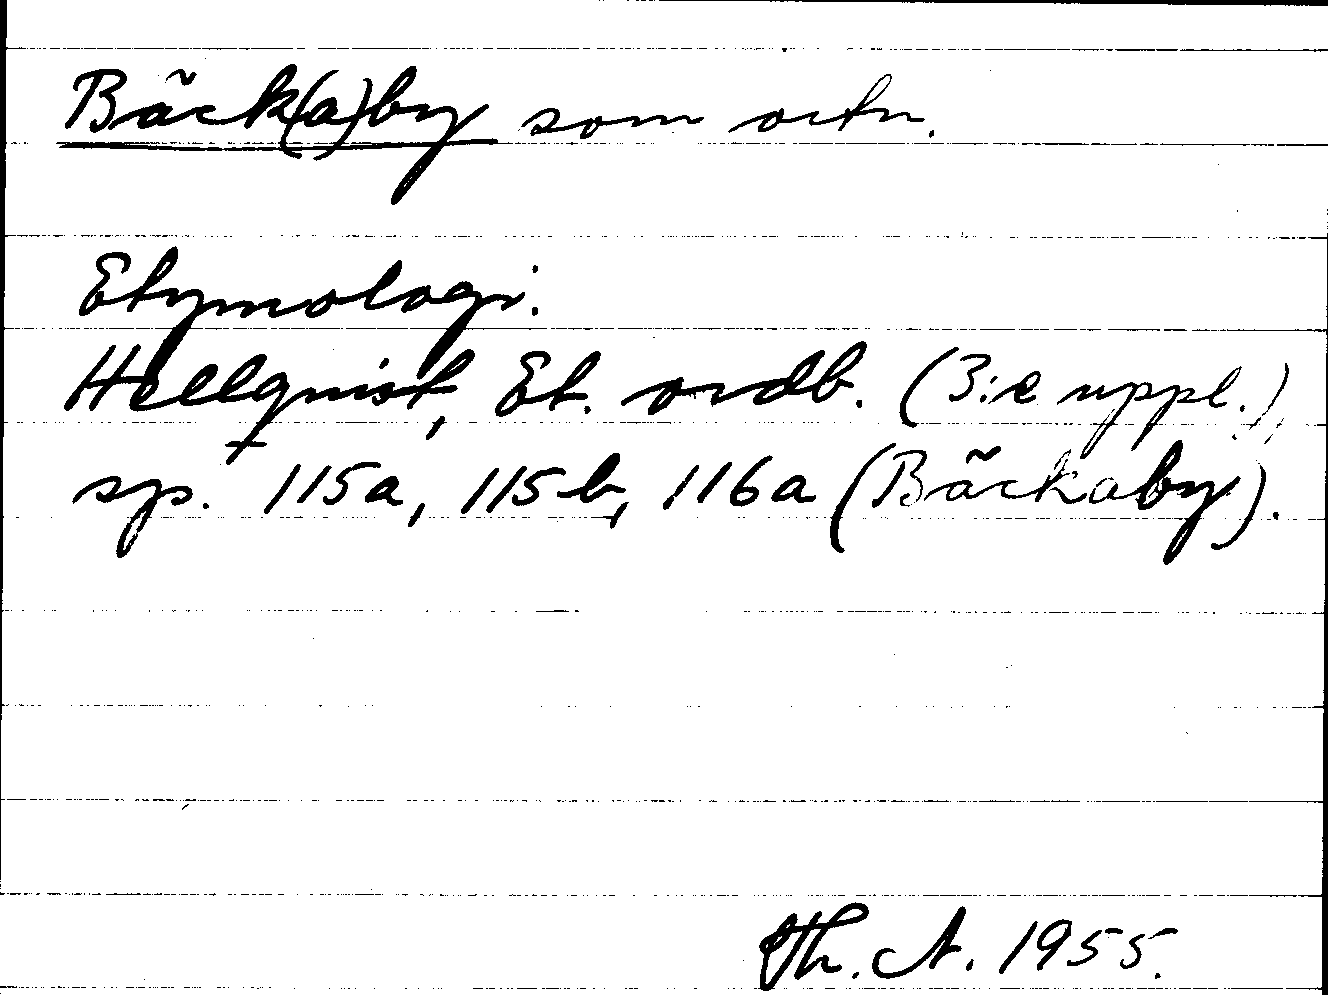 Bäck(a)by som ortn.
Etymologi.
Hellquist, Et. ordb. (3:e uppl.),
sp. 115a, 115b, 116a (Bäckaby).
Th. A. 1955.